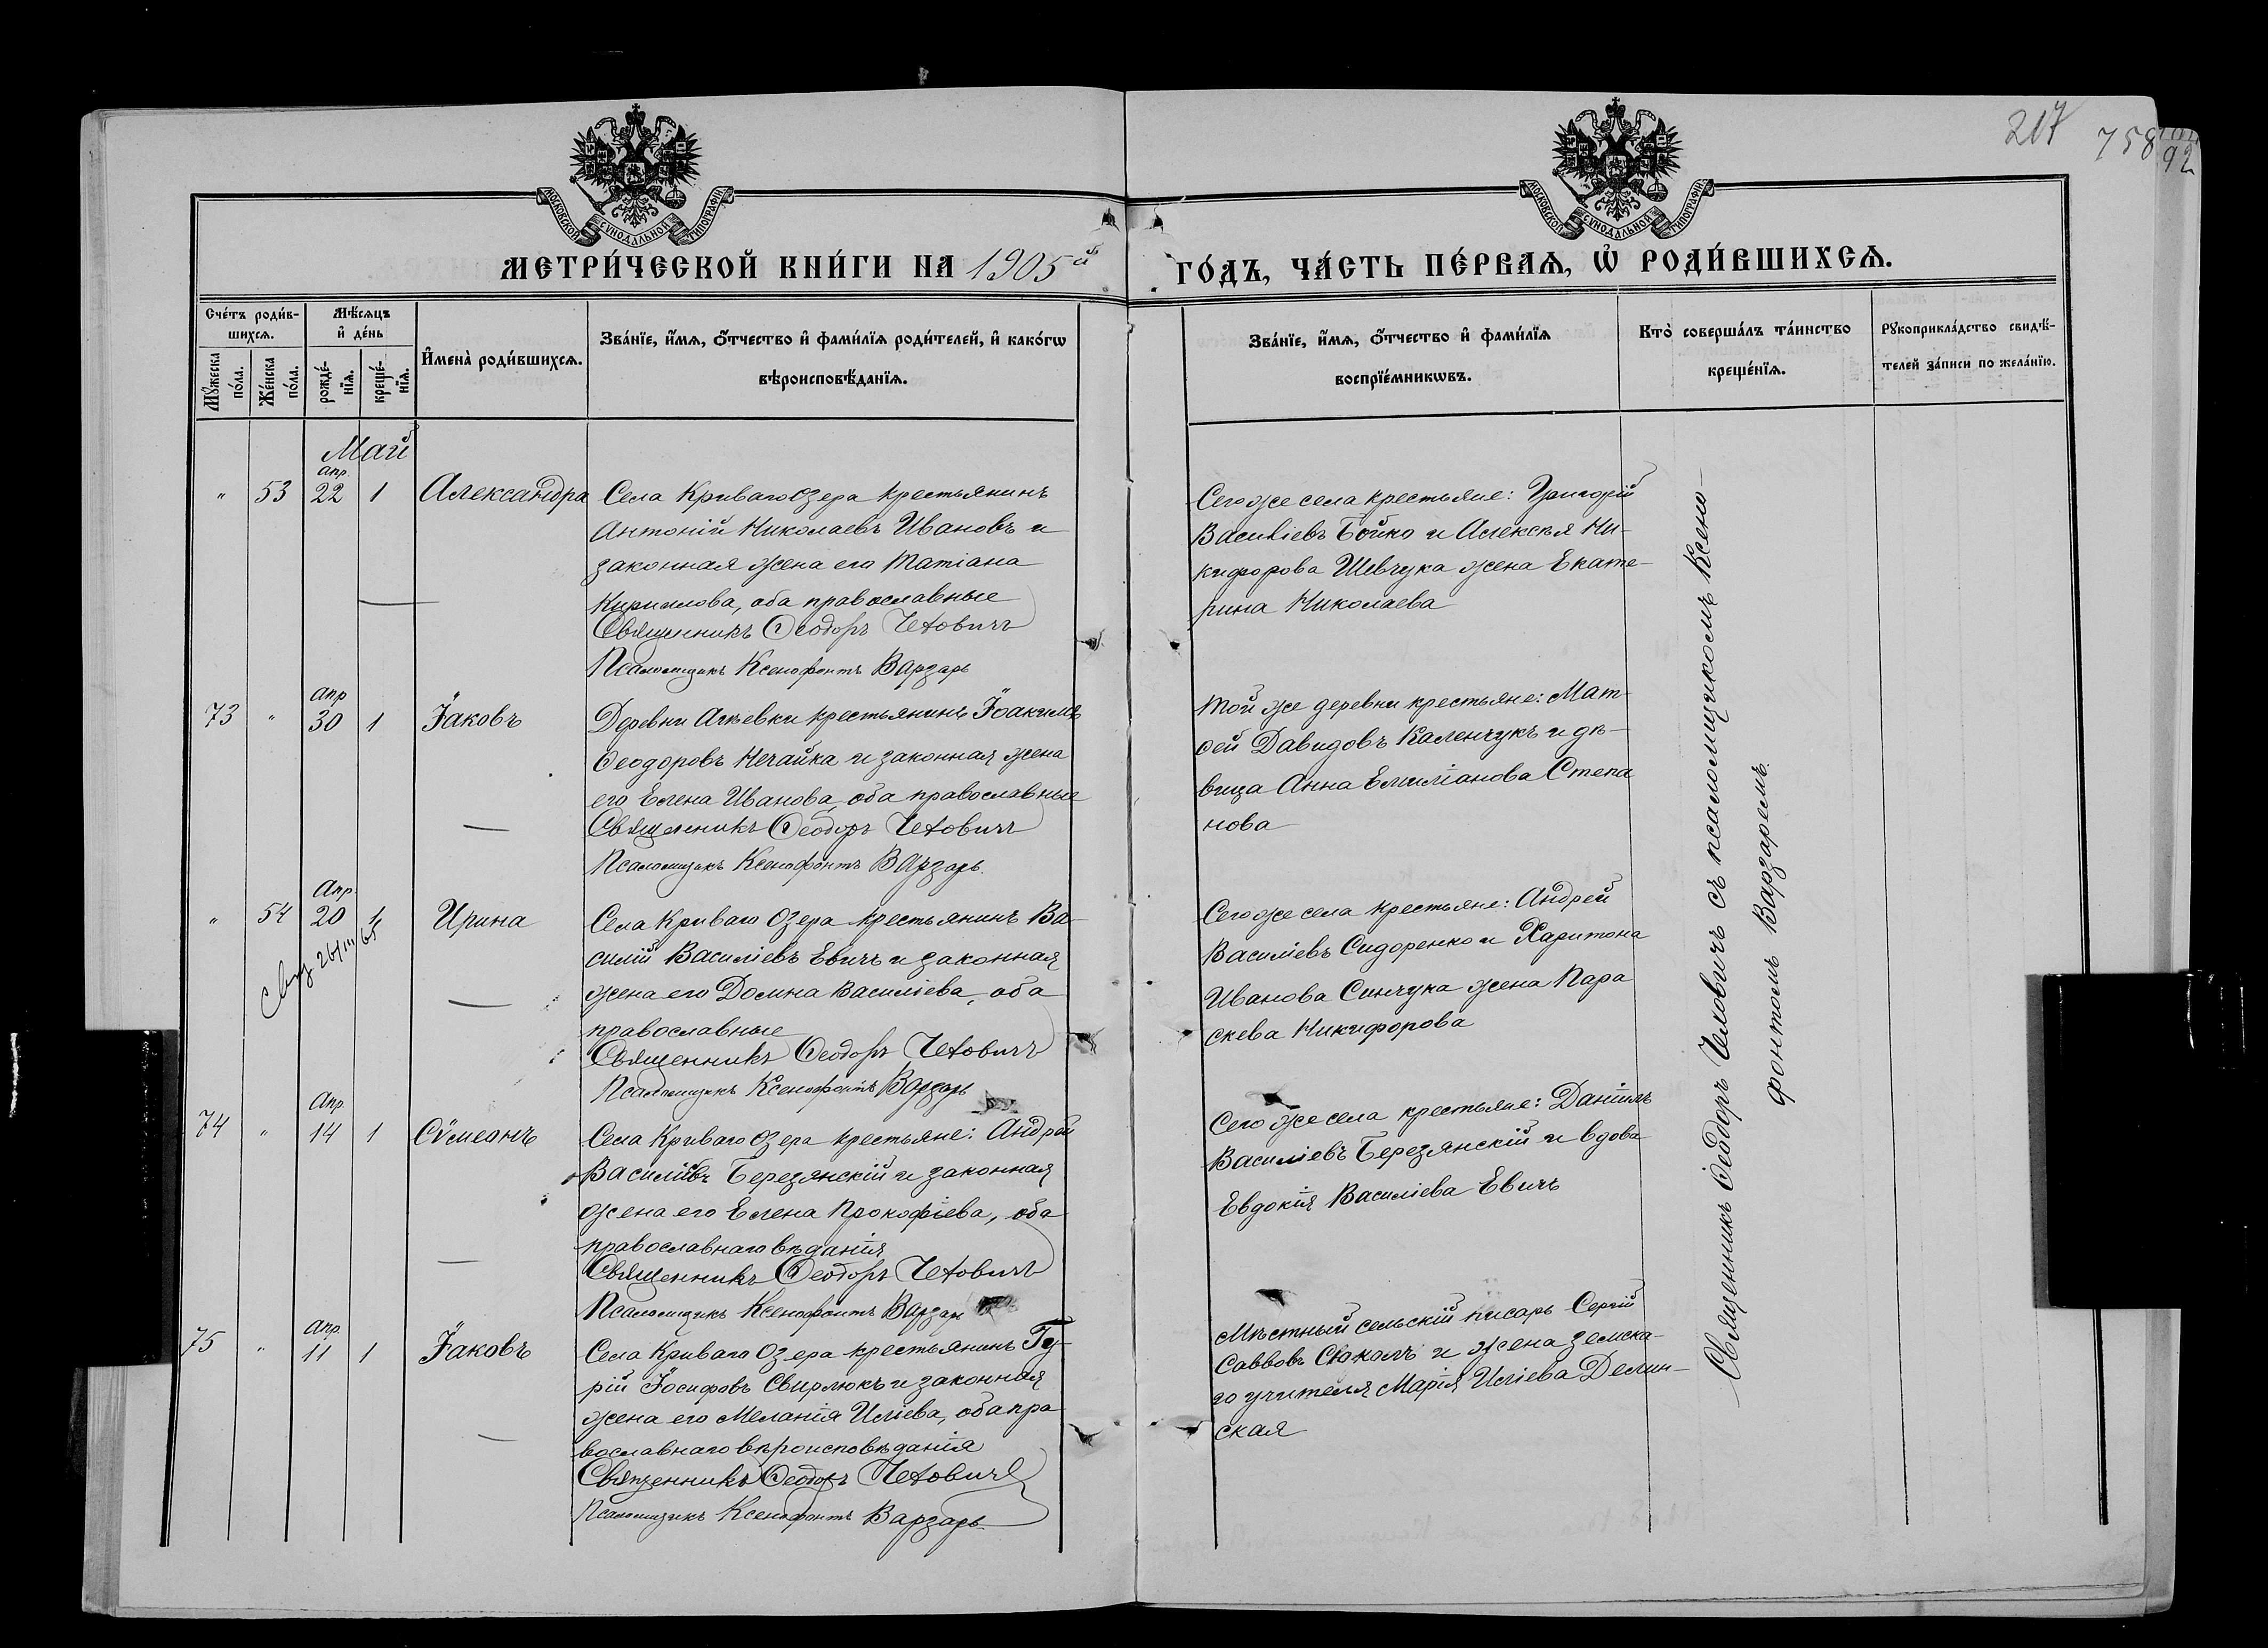 217 758 92
МОСКОВСКОЙ СѴНОДАЛЬНОЙ ТИПОГРАФІИ
МОСКОВСКОЙ СѴНОДАЛЬНОЙ ТИПОГРАФІИ
МЕТРИ́ЧЕСКОЙ КНИ́ГИ НА 1905й ГО́ДЪ, ЧА́СТЬ ПЕ́РВАѦ, Ѡ РОДИ́ВШИХСѦ.
Сче́тъ роди́в-
шихсѧ.
Мꙋ́жеска по́ла.
Же́нска по́ла.
Мѣ́сѧцъ
и҆ де́нь
рожде́-
нїѧ.
креще́-
нїѧ.
И҆мена̀ роди́вшихсѧ.
Зва́нїе, и҆́мѧ, ѻ҆́тчество и҆ фами́лїѧ роди́телей, и҆ како́гѡ
вѣроисповѣ́данїѧ.
Зва́нїе, и҆́мѧ, ѻ҆́тчество и҆ фами́лїѧ
воспрїе́мникѡвъ.
Кто̀ соверша́лъ та́инство
креще́нїѧ.
Рꙋкоприкла́дство свидѣ́-
телей за́писи по жела́нїю.
Май
" 53 апр. 22 1 Александра
Села Криваго Озера крестьянинъ
Антоній Николаевъ Ивановъ и
законная жена его Татіана
Кириллова, оба православные
Священникъ Ѳеодоръ Человичъ
Псаломщикъ Ксенофонтъ Варзарь
Сего же села крестьяне: Григорій
Василіевъ Бойко и Алексѣя Ни-
кифорова Шевчука жена Екате-
рина Николаева
73 " апр 30 1 Іаковъ
Деревни Агѣевки крестьянинъ Іоакимъ
Ѳеодоровъ Нечайка и законная жена
его Елена Иванова, оба православные
Священникъ Ѳеодоръ Человичъ
Псаломщикъ Ксенофонтъ Варзарь.
Той же деревни крестьяне: Мат-
ѳей Давидовъ Каленчукъ и дѣ-
вица Анна Емиліанова Степа
нова
" 54 Апр. 20 1 Ирина
Села Криваго Озера крестьянинъ Ва-
силій Василіевъ Евичъ и законная
жена его Домна Василіева, оба
православные
Священникъ Ѳеодоръ Человичъ
Псаломщикъ Ксенофонтъ Варзарь
Сего же села крестьяне: Андрей
Василіевъ Сидоренко и Харитона
Иванова Синчука жена Пара
скева Никифорова
74 " Апр. 14 1 Сѵмеонъ
Села Криваго Озера крестьяне: Андрей
Василіевъ Березянскій и законная
жена его Елена Прокофіева, оба
православнаго вѣданія
Священникъ Ѳеодоръ Человичъ
Псаломщикъ Ксенофонтъ Варзарь
Сего же села крестьяне: Даніилъ
Василіевъ Березянскій и вдова
Евдокія Василіева Евичъ
75 " апр. 11 1 Іаковъ
Села Криваго Озера крестьянинъ Гу-
рій Іосифовъ Свирлюкъ и законная
жена его Меланія Иліева, оба пра
вославнаго вѣроисповѣданія
Священникъ Ѳеодоръ Человичъ
Псаломщикъ Ксенофонтъ Варзарь
Мѣстный сельскій писарь Сергій
Саввовъ Стокалъ и жена земска-
го учителя Марія Иліева Делин-
ская
Священникъ Ѳеодоръ Человичъ съ псаломщикомъ Ксено-
фонтомъ Варзаремъ.